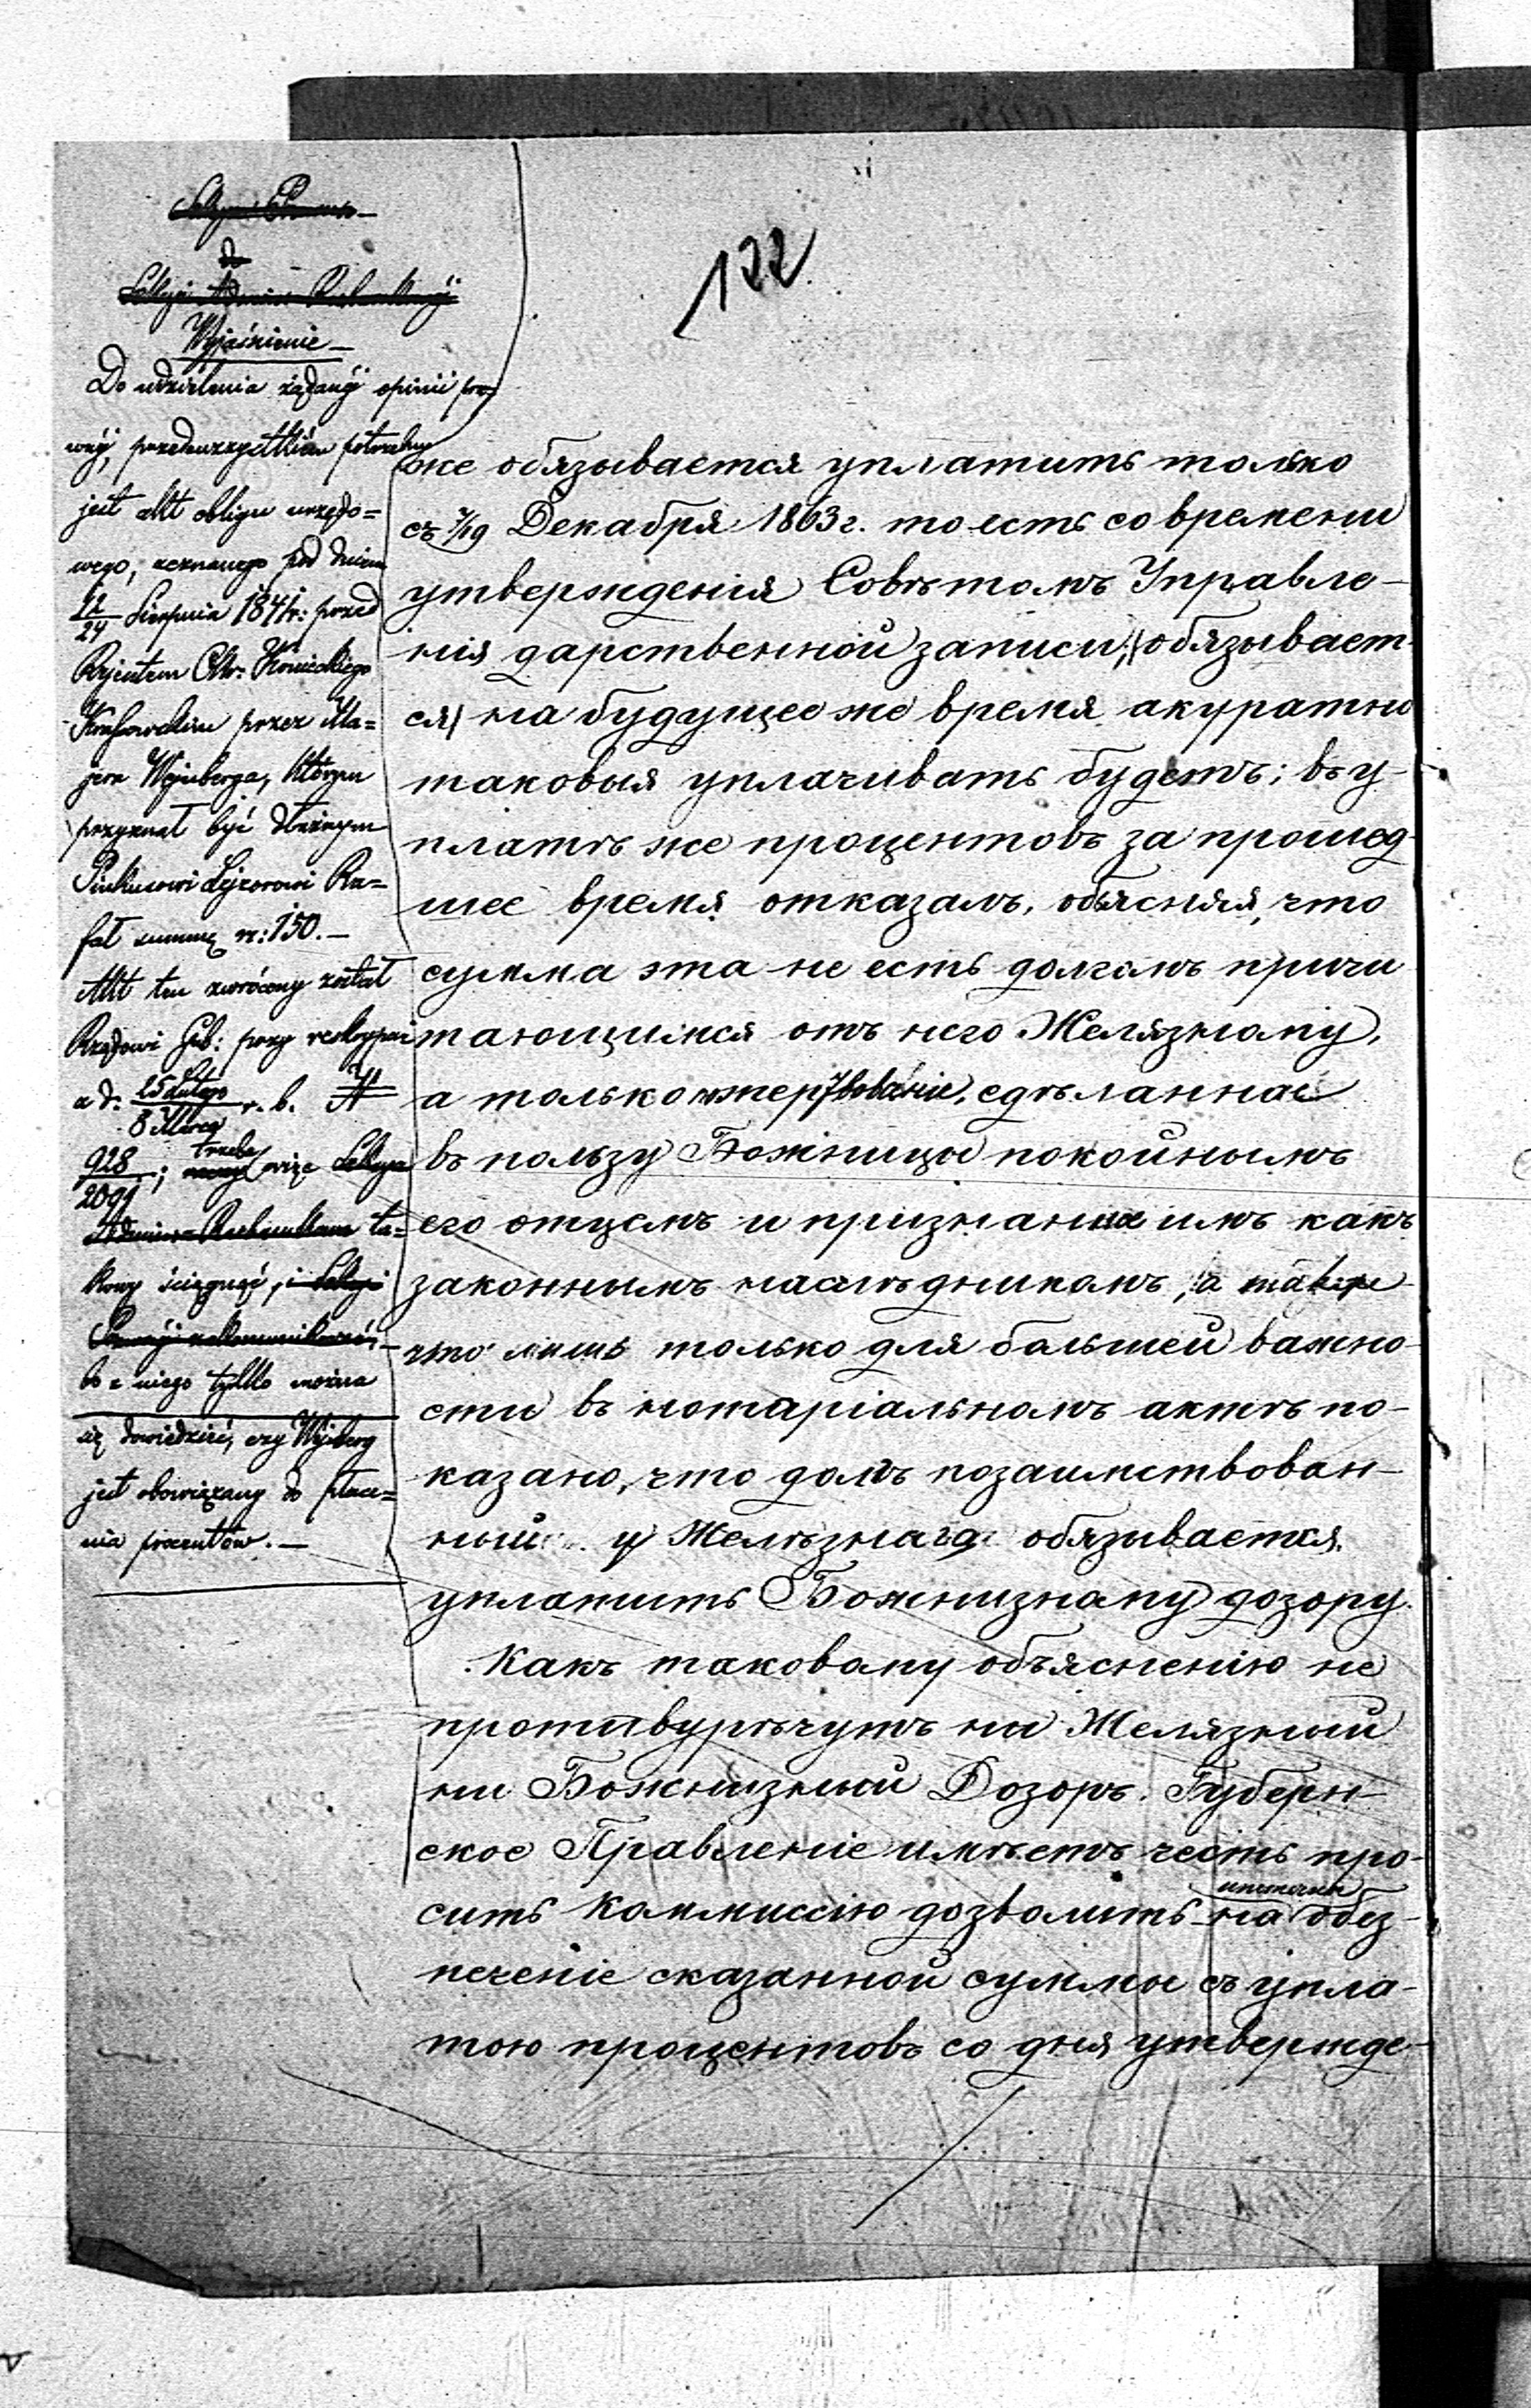 122
Wyjaśnienie —
Do udzielenia żądanéj opinii pra-
wnéj, przedewszystkiém potrzebny
jest akt obligu urzędo=
wego, zeznanego pod dniem
12/24 Sierpnia 1841 r: przed
Rejentem Okr:
przez Ma=
jera Wejnberga, którym
przyznał być dłużnym
Pinkusowi Lejzorowi Ra=
fał summę rs: 150. —
Akt ten zwrócony został
Rządowi Gub: przy reskrypcie
z d: 25 Lutego/8 Marca r. b. N
918/2091; trzeba więc
ta=
kowy ściągnąć,
bo z niego tylko można
się dowiedzieć, czy Wejnberg
jest obowiązany do płace=
nia procentów. —
же обязывается уплатить только
съ 7/19 Декабря 1863 г. то есть со времени
утвержденія Совѣтомъ Управле-
нія дарственной записи, обязывает-
ся на будущее же время акуратно
таковыя уплачивать будетъ; въ у-
платѣ же процентовъ за прошед-
шее время отказалъ, объясняя, что
сумма эта не есть долгомъ причи
тающимся отъ него Желязному,
а только пожертвованіе, сдѣланная
въ пользу Божницы покойнымъ
его отцемъ и признанная имъ какъ
законнымъ наслѣдникомъ, а также
что лишь только для большей важно-
сти въ нотаріальномъ актѣ по-
казано, что долъ позаимствован-
ный у Желѣзнаго обязывается
уплатить Божнизному дозору.
Какъ таковому объясненію не
противурѣчутъ ни Желязный
ни Божнизный Дозоръ, Губерн-
ское Правленіе имѣетъ честь про-
сить Коммиссію дозволить на обез-
печеніе сказанной суммы съ упла-
тою процентовъ со дня утвержде-